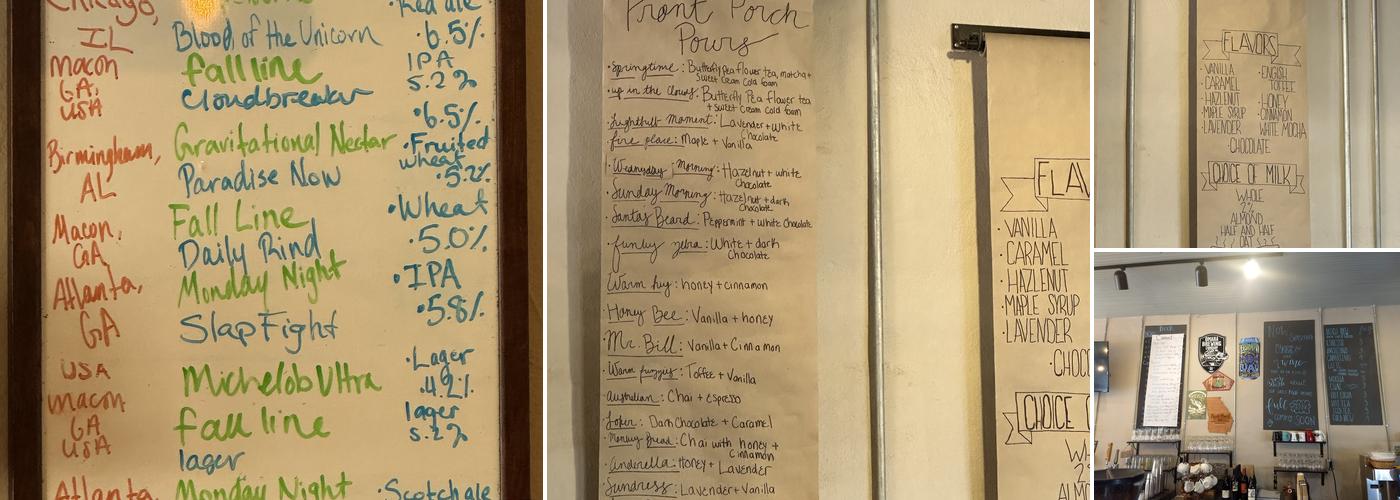 Chicago,
IL
Blood of the Unicorn
Red ale
6.5%
Macon
GA,
USA
fall line
Cloudbreaker
IPA
5.2%
Birmingham,
AL
Gravitational Nectar
Paradise Now
6.5%
Fruited
wheat
5.2%
Macon,
GA
Fall Line
Daily Rind
Wheat
5.0%
Atlanta,
GA
Monday Night
Slap Fight
IPA
5.8%
USA
Michelob Ultra
Lager
4.2%
Macon
GA
USA
fall line
lager
lager
5.2%
Atlanta,
Monday Night
Scotch ale
Front Porch
Pours
Springtime: Butterfly pea flower tea, matcha +
Sweet Cream Cold foam
up in the clouds: Butterfly Pea flower tea
+ Sweet Cream Cold foam
Lightbulb Moment: Lavender + White
Chocolate
fire place: Maple + Vanilla
Wednesday Morning: Hazelnut + white
Chocolate
Sunday Morning: Hazelnut + dark
Chocolate
Santas Beard: Peppermint + White Chocolate
funky zebra: White + dark
Chocolate
Warm hug: honey + cinnamon
Honey Bee: Vanilla + honey
Mr. Bill: Vanilla + Cinnamon
Warm fuzzies: Toffee + Vanilla
Australian: Chai + Espresso
Joker: Dark Chocolate + Caramel
Monkey Bread: Chai with honey +
cinnamon
Cinderella: Honey + Lavender
Sundress: Lavender + Vanilla
FLAV
VANILLA
CARAMEL
HAZLENUT
MAPLE SYRUP
LAVENDER
CHOC
CHOICE
WH
2%
ALMO
FLAVORS
VANILLA
CARAMEL
HAZLENUT
MAPLE SYRUP
LAVENDER
ENGLISH
TOFFEE
HONEY
CINNAMON
WHITE MOCHA
CHOCOLATE
CHOICE OF MILK
WHOLE
2%
ALMOND
HALF AND HALF
OAT
OMAHA
BREWING
full
coming SOON